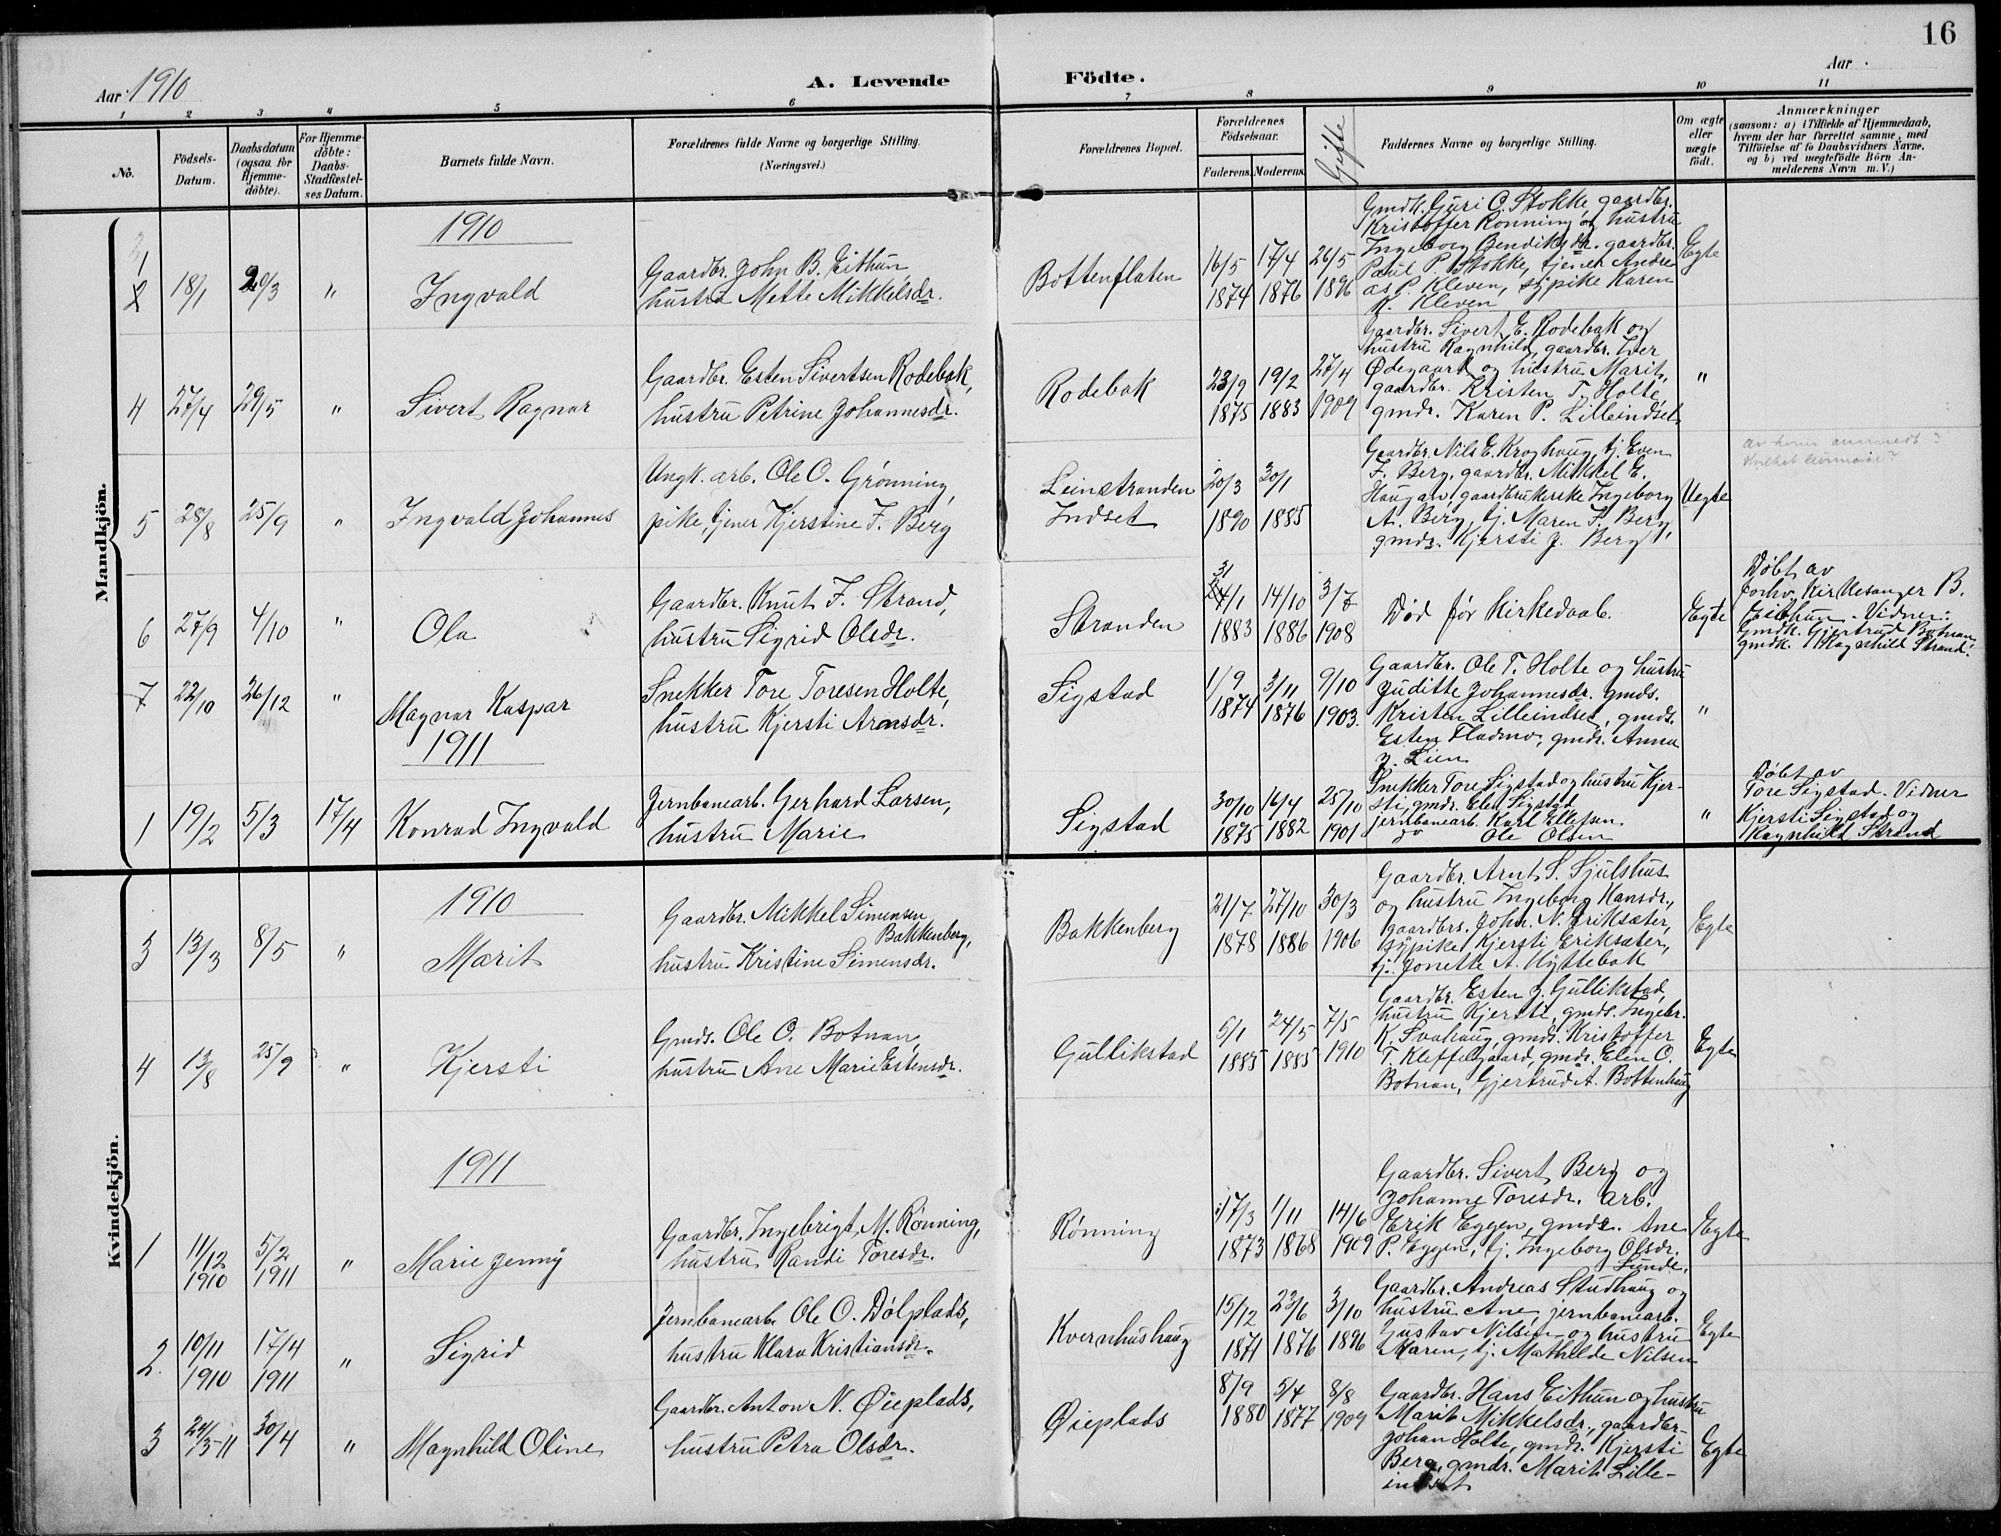 16
Aar 1910
A. Levende
Födte.
Aar
1 2 3 4 5 6 7 8 9 10 11
No.
Födsels-Datum.
Daabsdatum (ogsaa for Hjemme-döbte).
For Hjemme-döbte: Daabs-Stadfæstel-ses Datum.
Barnets fulde Navn.
Forældrenes fulde Navne og borgerlige Stilling. (Næringsvei.)
Forældrenes Bopæl.
Forældrenes Födselsaar.
Faderens. Moderens.
Gifte
Faddernes Navne og borgerlige Stilling.
Om ægte eller uægte födt.
Anmærkninger
(saasom: a) i Tilfælde af Hjemmedaab, hvem der har forrettet samme, med Tilföielse af to Daabsvidners Navne, og b) ved uægtefödte Börn An-melderens Navn m. V.)
Mandkjön.
1910
18/1 20/3 " Ingvald
Gaardbr. John B. Eithun,
hustru Mette Mikkelsdr.
Bottenflaten
16/5 1874 17/4 1876 26/5 1896
Gmdk. Guri O. Stokke, gaardbr.
Kristoffer Rønning og hustru
Ingeborg Bendiksdr. gaardbr.
Paul P. Stokke, tjener Andre
as P. Kleven, sypike Karen
K. Kleven
Egte
4 27/4 29/5 " Sivert Ragnar
Gaardbr. Esten Sivertsen Rodebak,
hustru Petrine Johannesdr.
Rodebak
23/9 1875 19/2 1883 27/4 1909
Gaardbr. Sivert E. Rodebak og
hustru Ragnhild, gaardbr. Iver
Ødegaard og hustru Marit,
gaardbr. Kristen T. Holte,
gmdr. Karen P. Lilleindset
"
5 28/8 25/9 " Ingvald Johannes
Ungk. arb. Ole O. Grønning,
pike, tjener Kjerstine F. Berg
Leinstranden
Indset
20/3 1890 30/1 1885
Gaardbr. Nils E. Kroghaug, tj. Even
F. Berg, gaardbr. Mikkel E.
Haugan, gaardbrukerske Ingeborg
A. Berg, tj. Maren F. Berg,
gmdr. Kjersti J. Berg
Uegte
6 27/9 4/10 " Ola
Gaardbr. Knut F. Strand,
hustru Sigrid Olsdr.
Stranden
31/1 1883 14/10 1886 3/7 1908
Død før kirkedaab.
Egte
Døbt av
forhv. kirkesanger B.
Eithun. Vidner:
gmdk. Gjertrud Botnan,
gmdk. Ragnhild Strand.
7 22/10 26/12 " Magnar Kaspar
Snekker Tore Toresen Holte,
hustru Kjersti Arnesdr.
Sigstad
1/9 1874 3/11 1876 9/10 1903.
Gaardbr. Ole T. Holte og hustru
Juditte Johannesdr. gmds.
Kristen Lilleindset, gmds.
Esten Fladmo, gmdr. Anna
J. Lien
"
1911
1 19/2 5/3 17/4 Konrad Ingvald
Jernbanearb. Gerhard Larsen,
hustru Marie
Sigstad
30/10 1875 16/4 1882 25/10 1901
Snekker Tore Sigstad og hustru Kjer-
sti, gmdr. Elen Sigstad
jernbanearb. Karl Ellefsen
do Ole Olsen
"
Døbt av
Tore Sigstad. Vidner
Kjersti Sigstad og
Ragnhild Strand
Kvindekjön.
1910
3 13/3 8/5 " Marit
Gaardbr. Mikkel Simensen
Bakkenberg,
hustru Kristine Simensdr.
Bakkenberg
21/7 1878 27/10 1886 30/3 1906
Gaardbr. Arnt S. Sjulshus
og hustru Ingeborg Hansdr.,
gaardbrs. John. N. Eriksæter,
sypike Kjersti Eriksæter,
tj. Jonette A. Hyttebak
Egte
4 13/8 25/9 " Kjersti
Gmds. Ole O. Botnan,
hustru Ane Marie Estensdr.
Gullikstad
5/1 1885 24/5 1885 7/5 1910
Gaardbr. Esten J. Gullikstad,
hustru Kjersti, gmds. Ingebr.
K. Svahaug, gmds. Kristoffer
T. Kleffelgaard, gmdr. Elen O.
Botnan, Gjertrud A. Bottenhaug
Egte
1911
1 11/12 1910 5/2 1911 " Marie Jenny
Gaardbr. Ingebrigt M. Rønning,
hustru Randi Toresdr.
Rønning
17/3 1873 1/11 1868 14/6 1909
Gaardbr. Sivert Berg og
Johanne Toresdr. arb.
Erik Eggen, gmdr. Ane
P. Eggen, tj. Ingeborg Olsdr.
Sunde.
Egte
2. 10/11 1910 17/4 1911 " Sigrid
Jernbanearb. Ole O. Dølplads,
hustru Klara Kristiansdr.
Kvernhushaug
15/12 1871 23/6 1876 3/10 1896
Gaardbr. Andreas Studhaug og
hustru Ane, jernbanearb.
Gustav Nilsen og hustru
Maren, tj. Mathilde Nilsen
Egte
3 24/3-11 30/4 " Magnhild Oline
Gaardbr. Anton N. Øieplads,
hustru Petra Olsdr.
Øieplads
8/9 1880 5/4 1877 8/8 1909
Gaardbr. Hans Eithun og hustru
Marit Mikkelsdr, gaardbr.
Johan Holte, gmdr. Kjersti
Berg, gmdr. Marit Lille-
indset
Egte